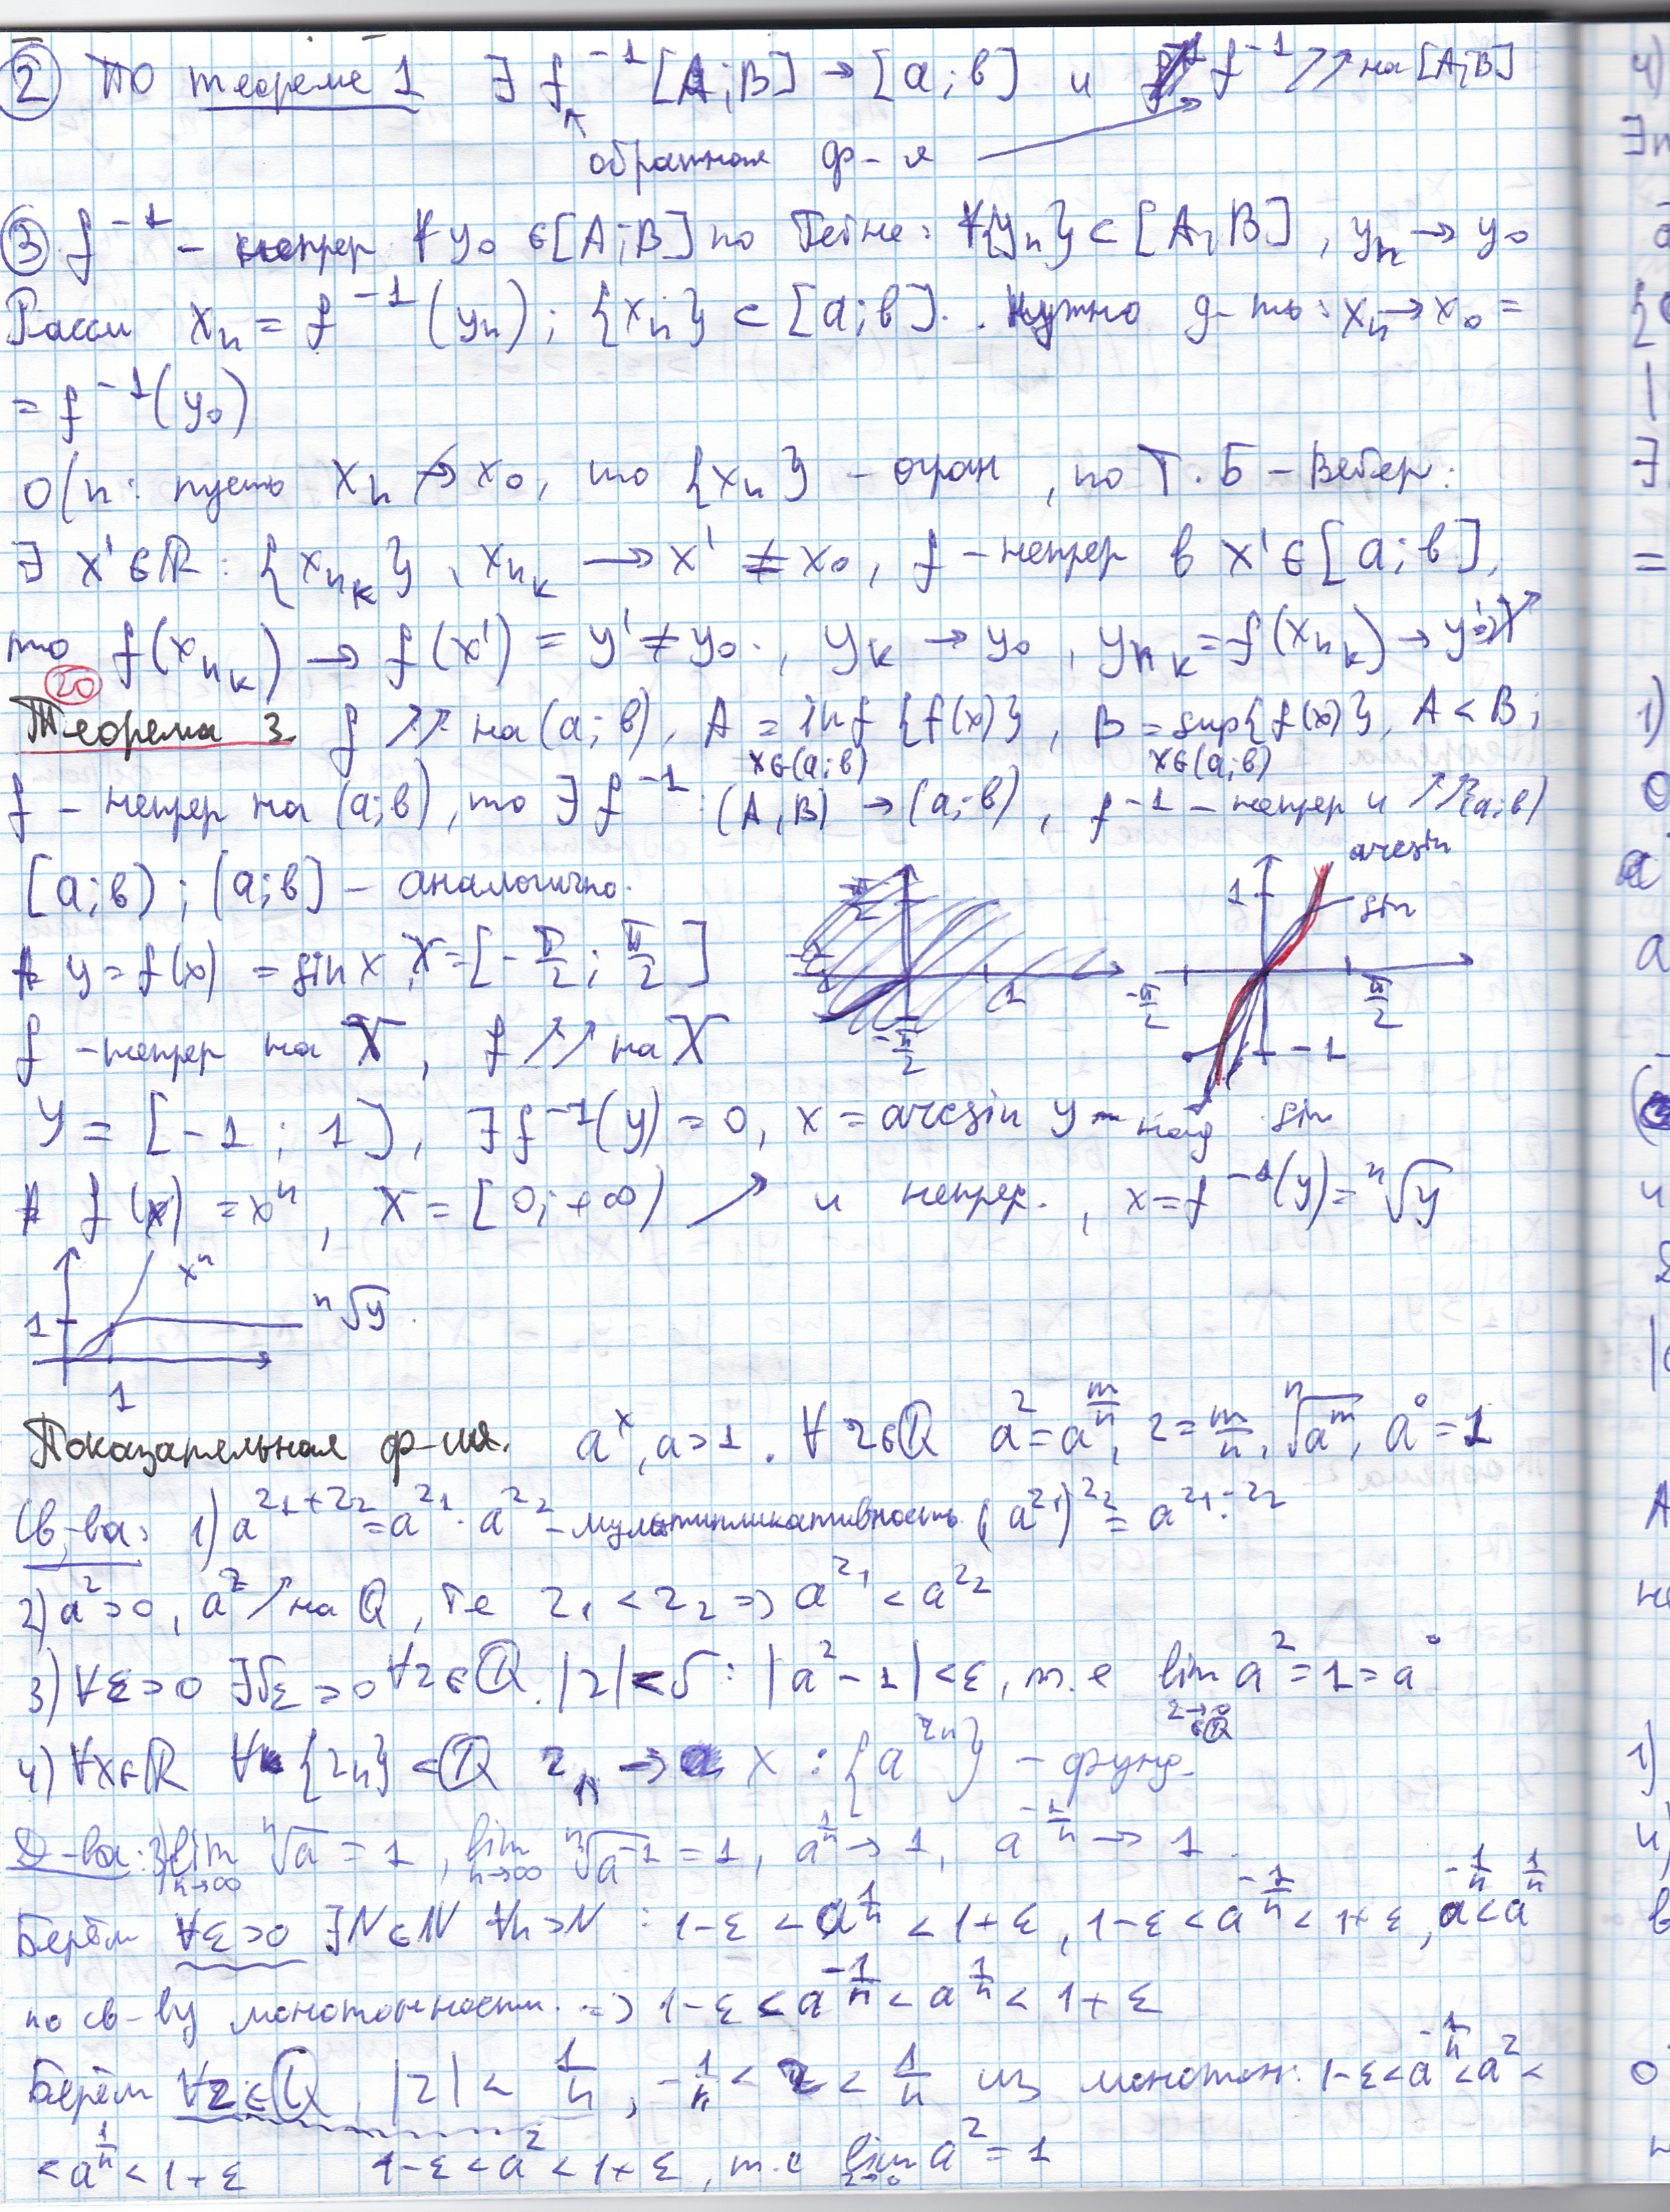 ② По теореме 1 ∃ f⁻¹ [A;B] → [a;b] и f⁻¹ ↗↗ на [A;B]
обратная ф-я
③ f⁻¹ - непрер ∀y₀ ∈ [A;B] по Гейне: ∀{yₙ} ⊂ [A,B], yₙ → y₀
Рассм xₙ = f⁻¹(yₙ); {xₙ} ⊂ [a;b]. Нужно д-ть: xₙ → x₀ =
= f⁻¹(y₀)
О/п: пусть xₙ ↛ x₀, то {xₙ} - огран, по Т. Б - Вейер:
∃ x' ∈ ℝ: {xₙₖ}, xₙₖ → x' ≠ x₀, f - непрер в x' ∈ [a;b],
то f(xₙₖ) → f(x') = y' ≠ y₀., yₖ → y₀, yₙₖ = f(xₙₖ) → y'
20
Теорема 3 f ↗↗ на (a;b), A = inf {f(x)}, B = sup{f(x)}, A < B;
x∈(a;b) x∈(a;b)
f - непрер на (a;b), то ∃ f⁻¹: (A,B) → (a;b), f⁻¹ - непрер и ↗↗ (a;b)
[a;b); (a;b] - аналогично.
y = f(x) = sin x, X = [-π/2; π/2]
f - непрер на X, f ↗↗ на X
π/2 1 -π/2
arcsin sin 1 -π/2 π/2 -1
Y = [-1; 1], ∃ f⁻¹(y) = 0, x = arcsin y - над sin
f(x) = xⁿ, X = [0; +∞) ↗ и непрер., x = f⁻¹(y) = ⁿ√y
xⁿ
1 ⁿ√y
1
Показательная ф-ия. aˣ, a > 1. ∀ r ∈ ℚ aʳ = a^(m/n), r = m/n, ⁿ√aᵐ, a⁰ = 1
Св-ва: 1) a^(r₁+r₂) = a^r₁ · a^r₂ - мультипликативность (a^r₁)^r₂ = a^(r₁·r₂)
2) aʳ > 0, aʳ ↗ на ℚ, те r₁ < r₂ => a^r₁ < a^r₂
3) ∀ε > 0 ∃δε > 0 ∀r ∈ ℚ. |r| < δ: |aʳ - 1| < ε, т.е lim aʳ = 1 = a⁰
r→0 ∈ℚ
4) ∀x∈ℝ ∀ {rₙ} ⊂ ℚ rₙ → x : {a^rₙ} - фунд.
Д-ва: 3) lim ⁿ√a = 1, lim ⁿ√a⁻¹ = 1, a^(1/n) → 1, a^(-1/n) → 1.
n→∞ n→∞
Берём ∀ε>0 ∃N∈ℕ ∀n>N : 1-ε < a^(1/n) < 1+ε, 1-ε < a^(-1/n) < 1+ε, a^(-1/n) < a^(1/n)
по св-ву монотонности. => 1-ε < a^(-1/n) < a^(1/n) < 1+ε
Берём ∀r∈ℚ |r| < 1/n, -1/n < r < 1/n из монотон: 1-ε < a^(-1/n) < aʳ <
< a^(1/n) < 1+ε 1-ε < aʳ < 1+ε, т.е lim aʳ = 1
r→0